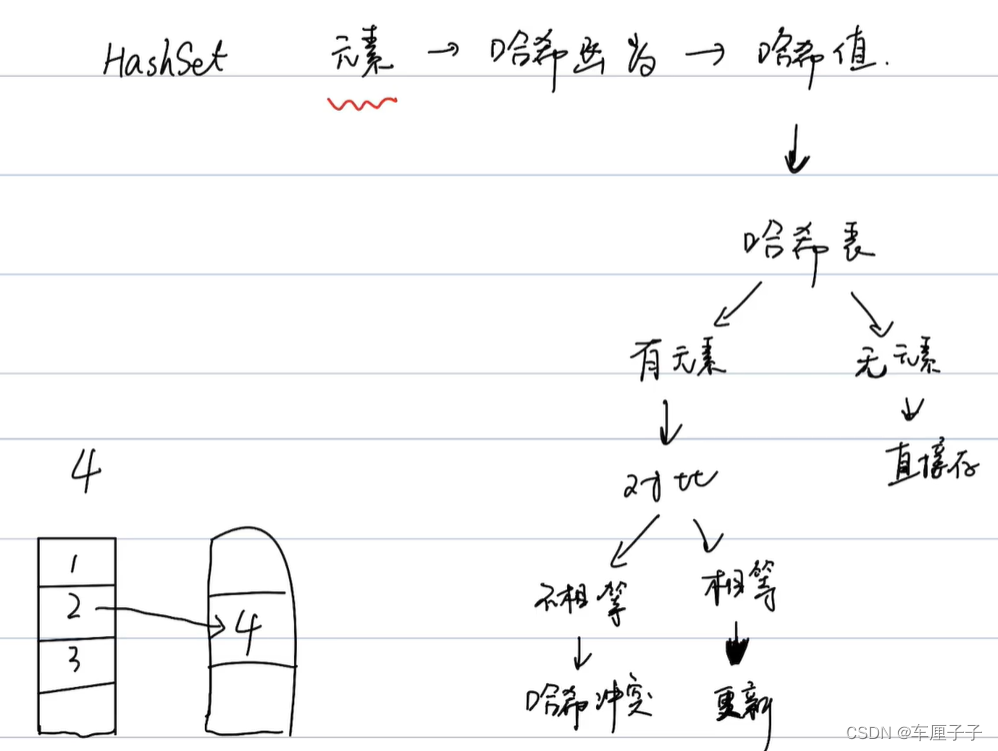 HashSet 元素 → 哈希函数 → 哈希值.
哈希表
有元素 无元素
直接存
4
对比
1
不相等 相等
2 4
3
哈希冲突 更新
CSDN @车厘子子